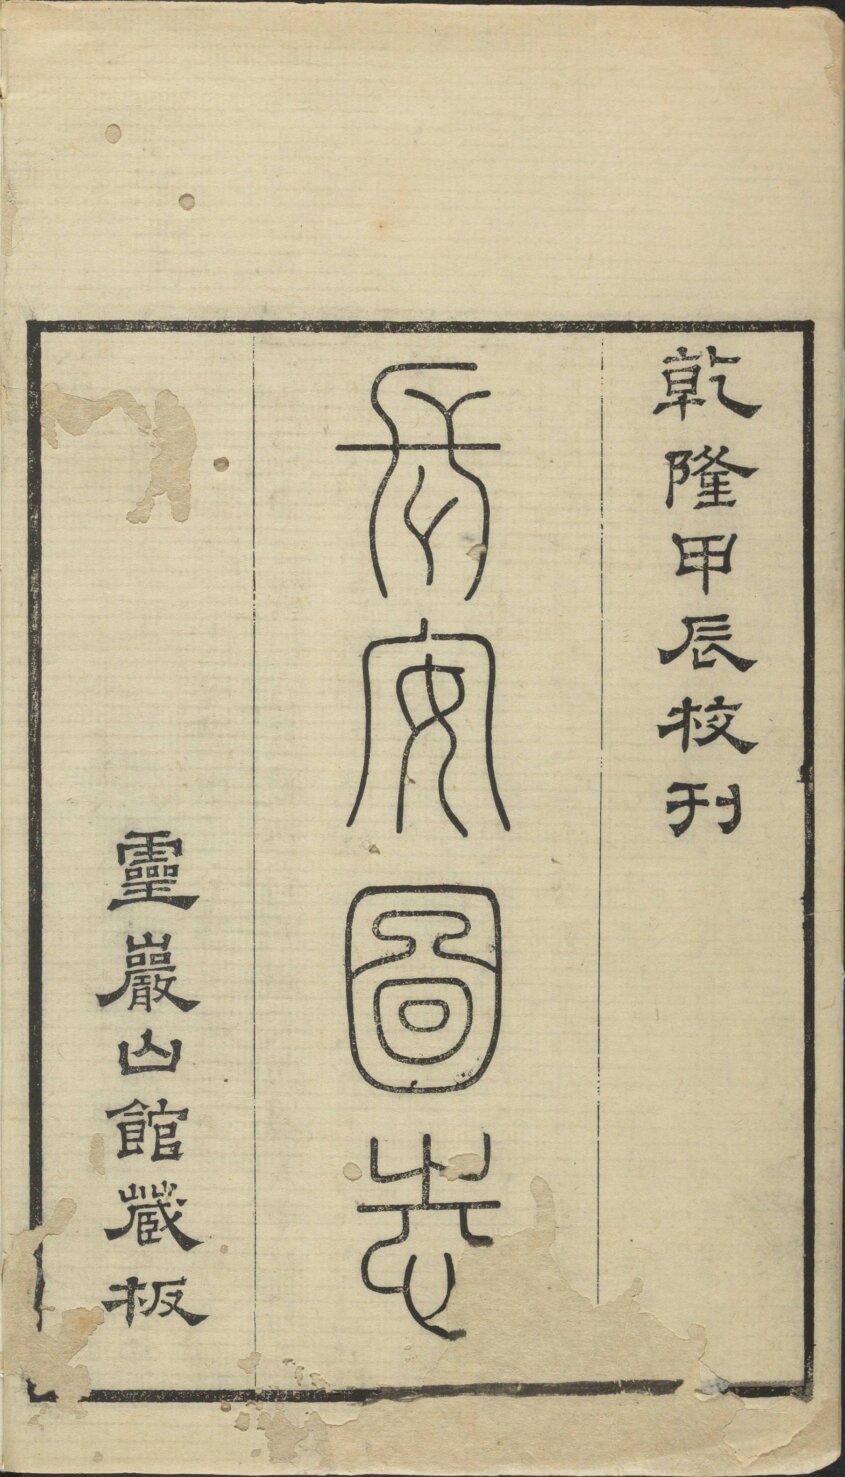 乾隆甲辰校刊
長安圖志
靈巖山館藏板